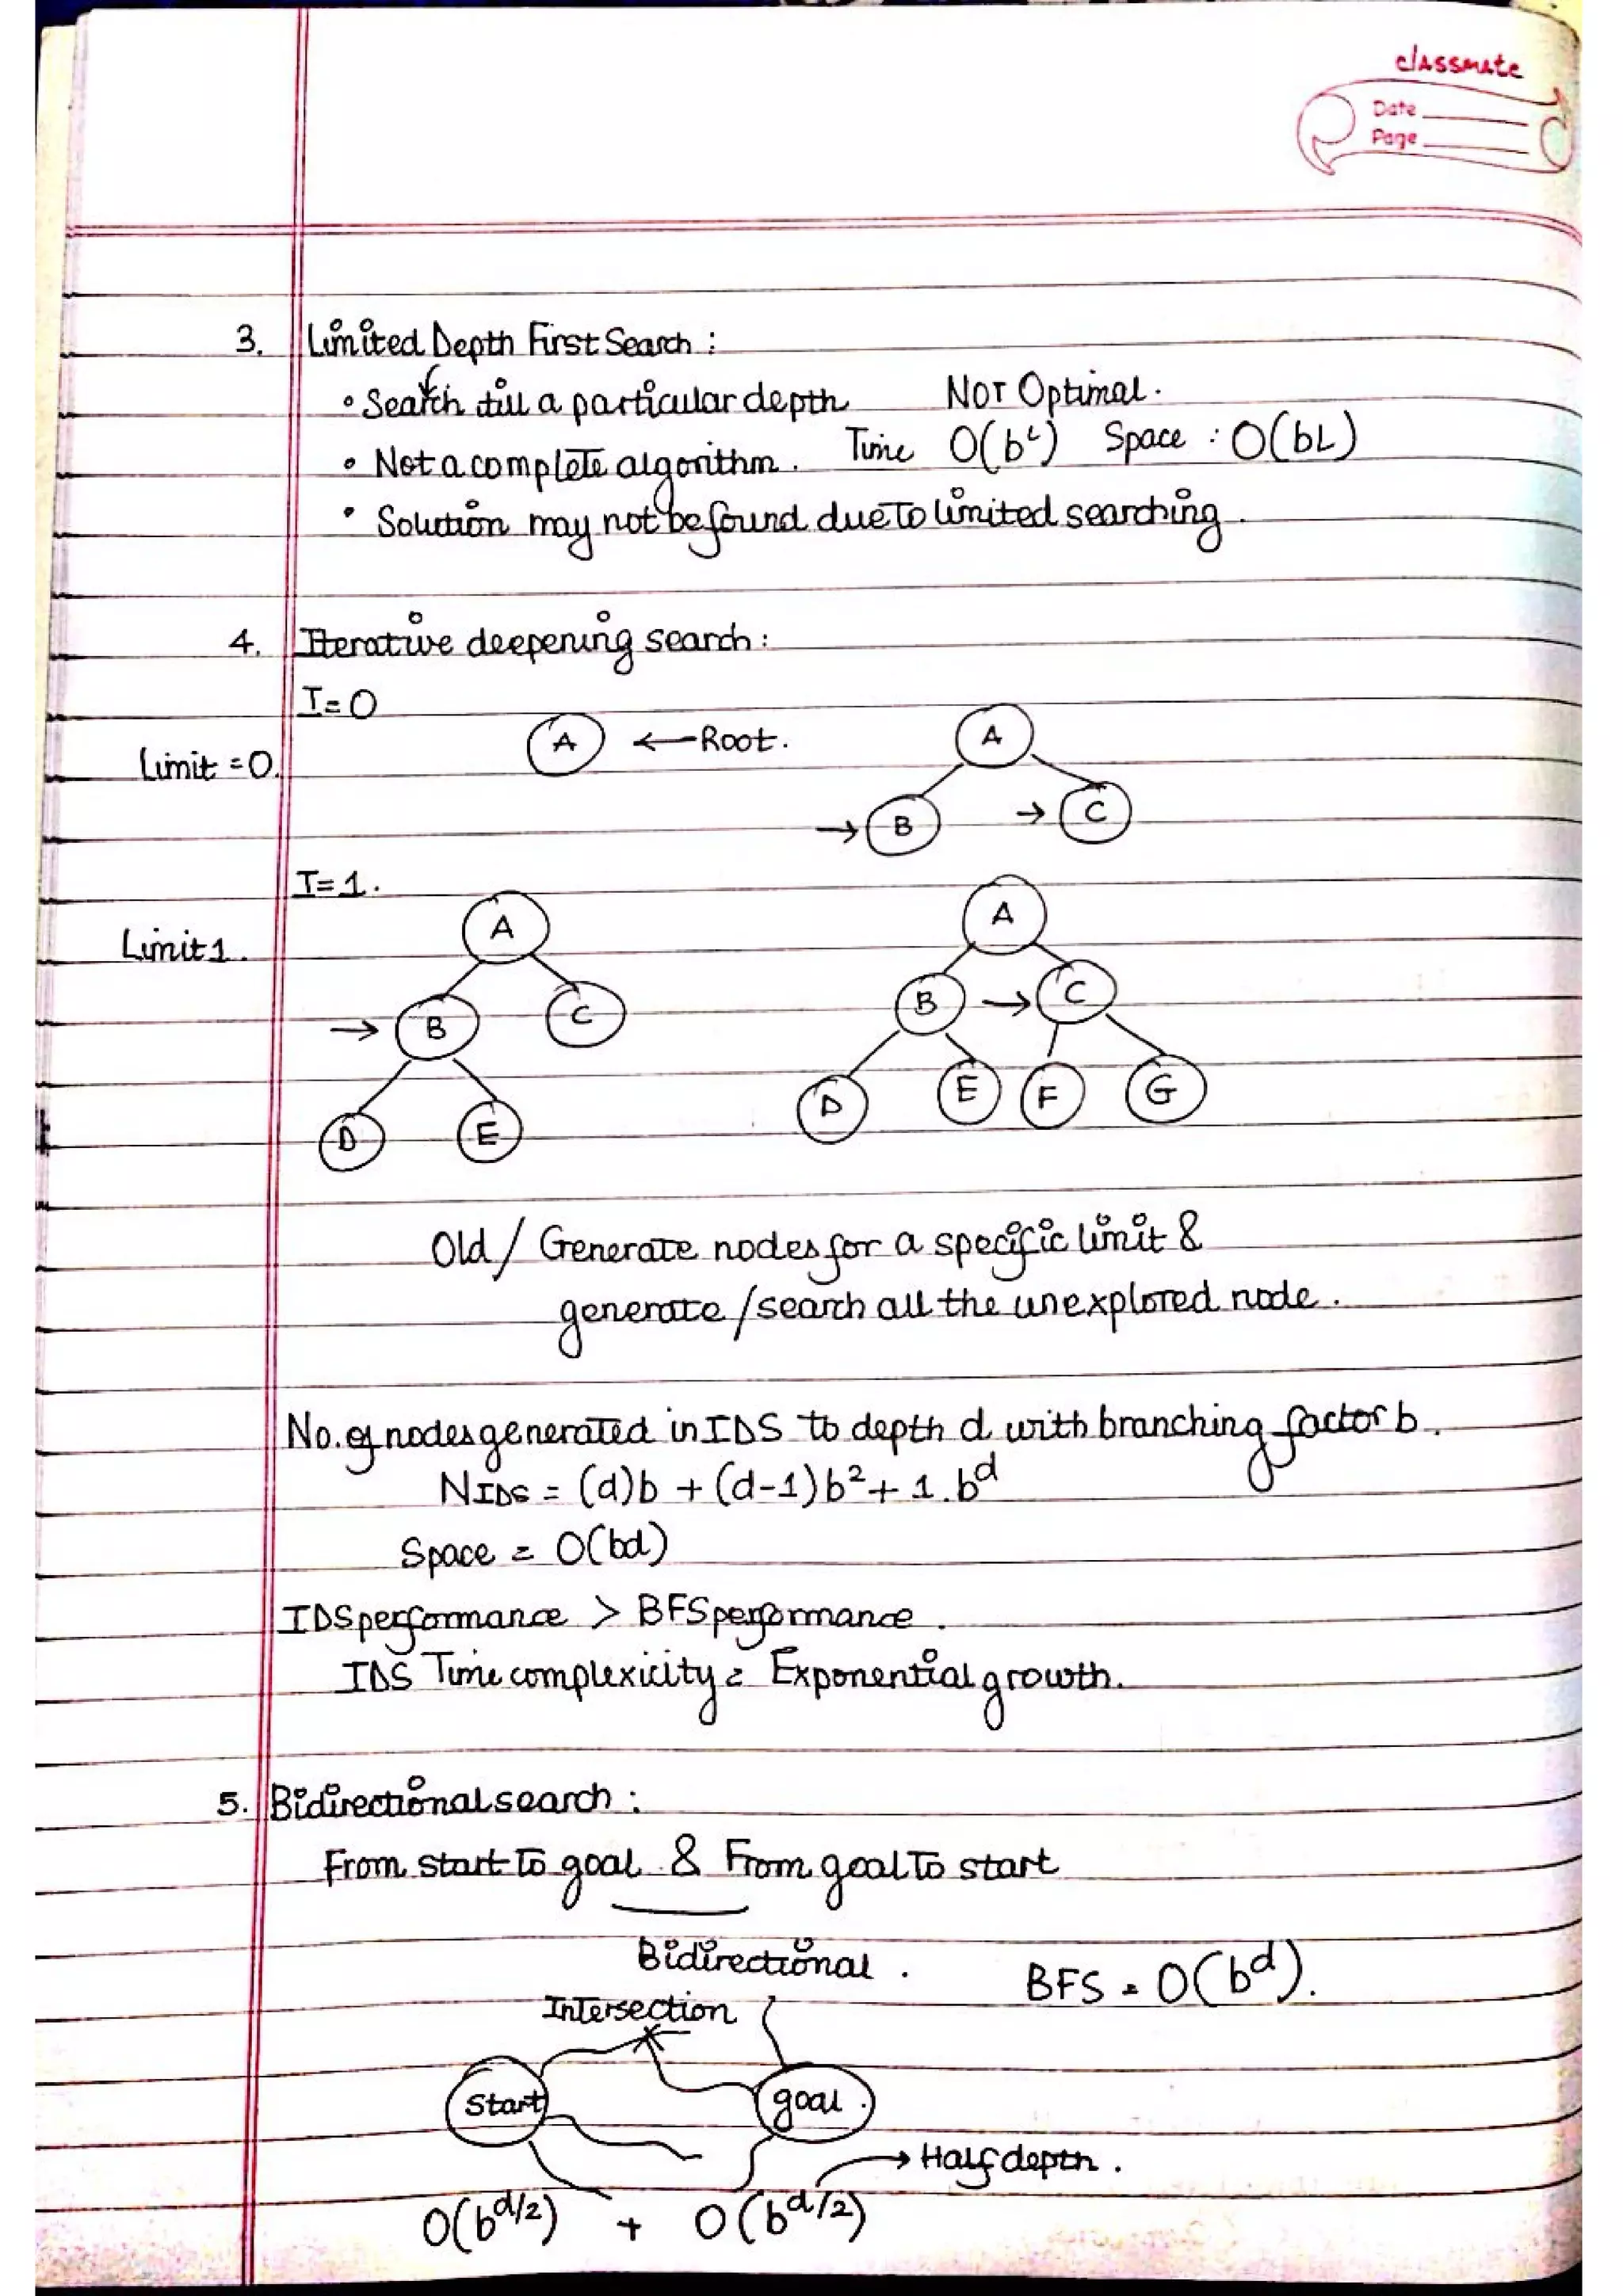 classmate
Date
Page
3. Limited Depth First Search :
• Search till a particular depth Not Optimal.
• Not a complete algorithm. Time O(b^L) Space : O(bL)
• Solution may not be found due to limited searching.
4. Iterative deepening search :
I=0
Limit =0.
A ← Root.
A
→ B → C
I=1.
Limit 1.
A
→ B C
D E
A
B → C
D E F G
Old / Generate nodes for a specific limit &
generate /search all the unexplored node.
No. of nodes generated in IDS to depth d with branching factor b.
NIDS = (d)b + (d-1)b² + 1.b^d
Space = O(bd)
IDS performance > BFS performance.
IDS Time complexicity = Exponential growth.
5. Bidirectional search :
From start to goal & From goal to start
Bidirectional.
BFS = O(b^d).
Intersection
Start goal.
→ Half depth.
O(b^d/2) + O(b^d/2)